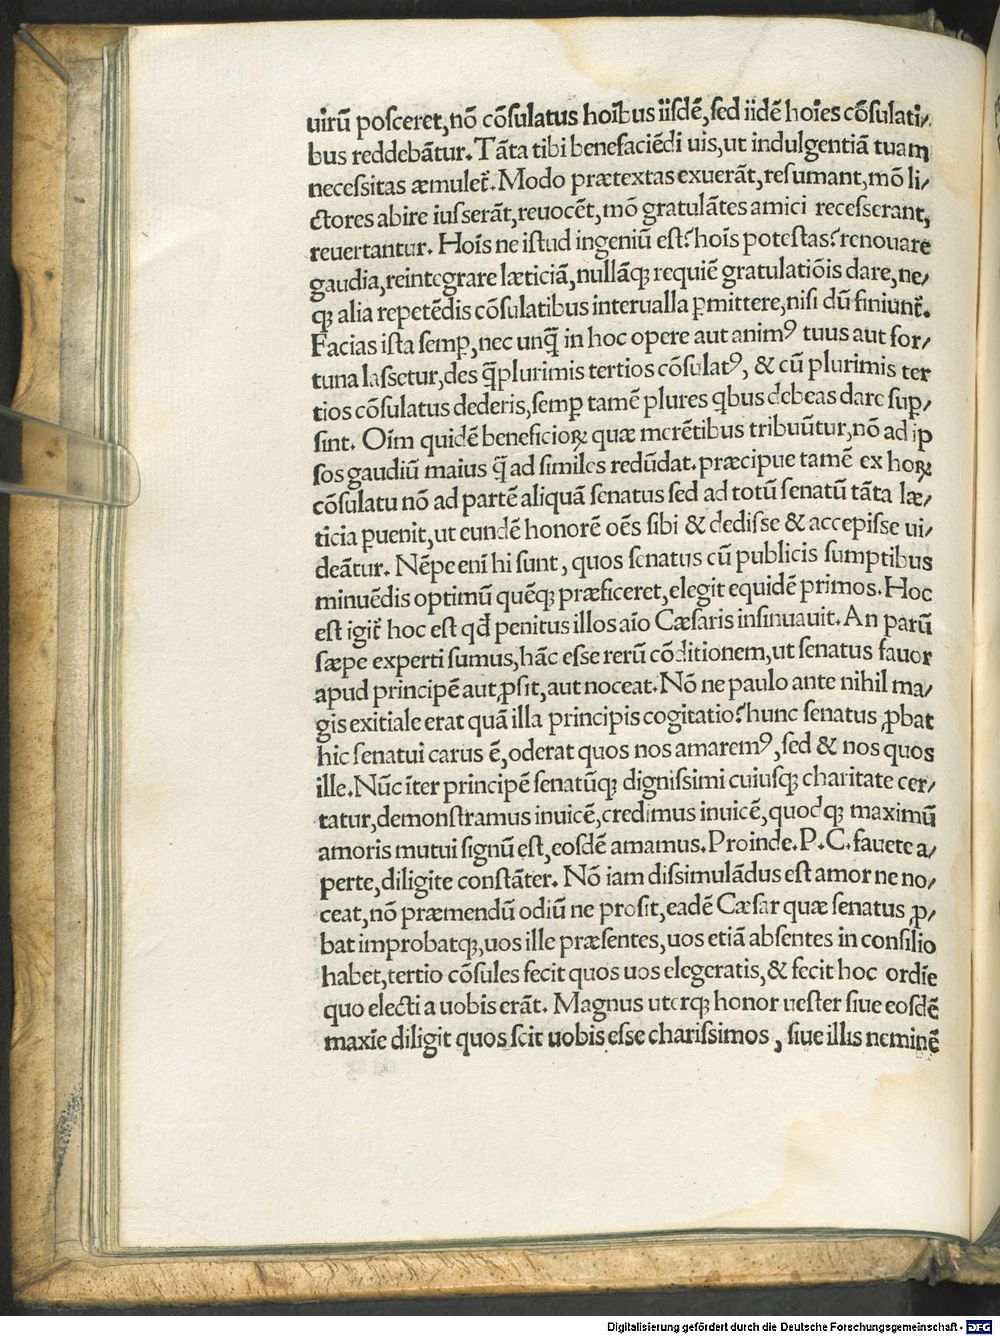 uirū poſceret,nō cōſulatus hoībus iiſdē,ſed iidē hoīes cōſulati/
bus reddebātur.Tāta tibi benefaciēdi uis,ut indulgentiā tuam
neceſſitas æmulet᷑.Modo prætextas exuerāt,reſumant,mō li/
ctores abire iuſſerāt,reuocēt,mō gratulātes amici receſſerant,
reuertantur. Hoīs ne iſtud ingeniū eſt?hoīs poteſtas?renouare
gaudia,reintegrare læticiā,nullāqꝫ requiē gratulatiōis dare,ne/
qꝫ alia repetēdis cōſulatibus interualla ꝑmittere,niſi dū finiunt᷑.
Facias iſta ſemꝑ,nec unq̄ in hoc opere aut animꝰ tuus aut for/
tuna laſſetur,des q̄plurimis tertios cōſulatꝰ, & cū plurimis ter
tios cōſulatus dederis,ſemꝑ tamē plures qbus debeas dare ſuꝑ/
ſint. Oīm quidē beneficioꝝ quæ merētibus tribuūtur,nō ad ip
ſos gaudiū maius q̄ ad ſimiles redūdat.præcipue tamē ex hoꝝ
cōſulatu nō ad partē aliquā ſenatus ſed ad totū ſenatū tāta læ/
ticia ꝑuenit,ut eundē honorē oēs ſibi & dediſſe & accepiſſe ui/
deātur. Nēpe enī hi ſunt, quos ſenatus cū publicis ſumptibus
minuēdis optimū quēqꝫ præficeret,elegit equidē primos.Hoc
eſt igit᷑ hoc eſt qd̄ penitus illos aīo Cæſaris inſinuauit.An parū
ſæpe experti ſumus,hāc eſſe rerū cōditionem,ut ſenatus fauor
apud principē aut ꝓſit,aut noceat.Nō ne paulo ante nihil ma/
gis exitiale erat quā illa principis cogitatio?hunc ſenatus ꝓbat
hic ſenatui carus ē,oderat quos nos amaremꝰ,ſed & nos quos
ille.Nūc īter principē ſenatūqꝫ digniſſimi cuiuſqꝫ charitate cer/
tatur,demonſtramus inuicē,credimus inuicē,quodqꝫ maximū
amoris mutui ſignū eſt,eoſdē amamus.Proinde.P.C.fauete a/
perte,diligite conſtāter. Nō iam diſſimulādus eſt amor ne no/
ceat,nō præmendū odiū ne proſit,eadē Cæſar quæ ſenatus ꝓ/
bat improbatqꝫ,uos ille præſentes,uos etiā abſentes in conſilio
habet,tertio cōſules fecit quos uos elegeratis,& fecit hoc ordīe
quo electi a uobis erāt. Magnus uterqꝫ honor ueſter ſiue eoſdē
maxīe diligit quos ſcit uobis eſſe chariſſimos, ſiue illis neminē
Digitalisierung gefördert durch die Deutsche Forschungsgemeinschaft - DFG